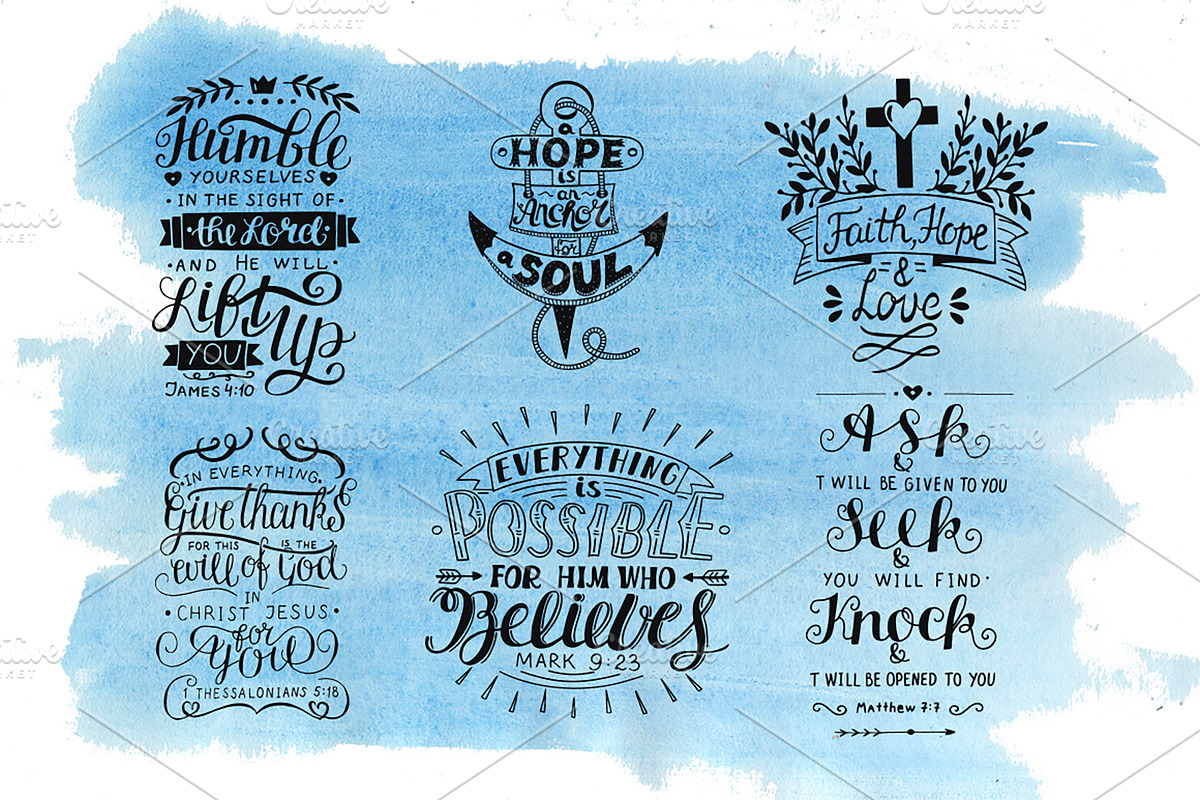 Humble
YOURSELVES
· IN THE SIGHT OF ·
· the Lord ·
· AND HE WILL ·
Lift
Up
YOU
JAMES 4:10
a
HOPE
is
an
Anchor
for
a SOUL
Faith, Hope
&
Love
· IN EVERYTHING,
Give thanks
FOR THIS IS THE
will of God
IN
· CHRIST JESUS ·
for
you
1 THESSALONIANS 5:18
EVERYTHING
is
POSSIBLE
FOR HIM WHO
Believes
MARK 9:23
Ask
&
T WILL BE GIVEN TO YOU
Seek
&
YOU WILL FIND ·
Knock
&
T WILL BE OPENED TO YOU
Matthew 7:7
Creative
MARKET